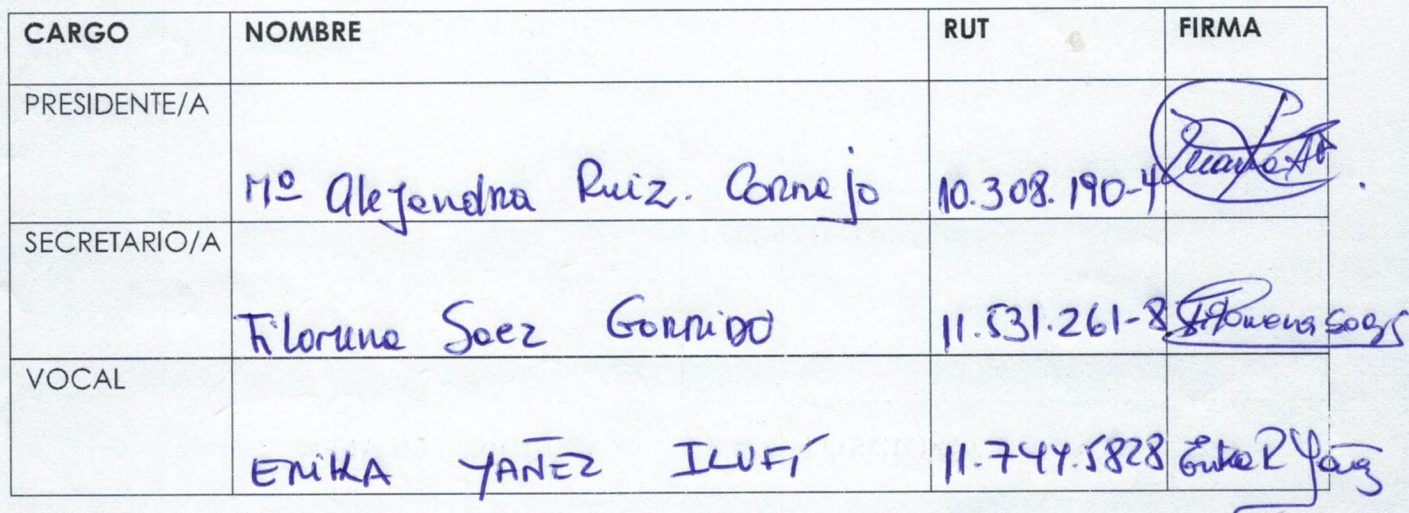 CARGO NOMBRE RUT FIRMA
PRESIDENTE/A
Mª Alejandra Ruiz. Cornejo 10.308.190-4
SECRETARIO/A
Filomena Saez Garrido 11.531.261-8 Filomena Saez
VOCAL
ERIKA YAÑEZ ILUFÍ 11.744.5828 Erika R Yañez